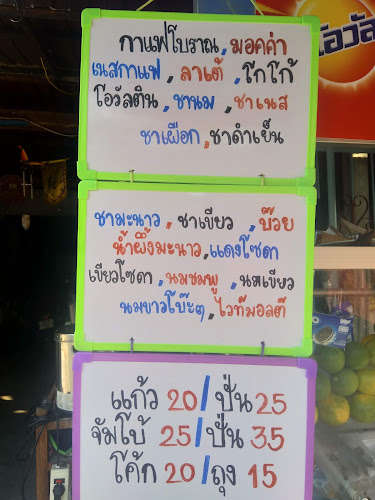 โอวัล
กาแฟโบราณ,มอคค่า
เนสกาแฟ,ลาเต้,โกโก้
โอวัลติน,ชานม,ชาเนส
ชาเผือก,ชาดำเย็น
ชามะนาว,ชาเขียว,บ๊วย
น้ำผึ้งมะนาว,แดงโซดา
เขียวโซดา,นมชมพู,นมเขียว
นมขาวโบ๊ะๆ,ไวท์มอลต์
แก้ว 20/ปั่น 25
จัมโบ้ 25/ปั่น 35
โค้ก 20/ถุง 15